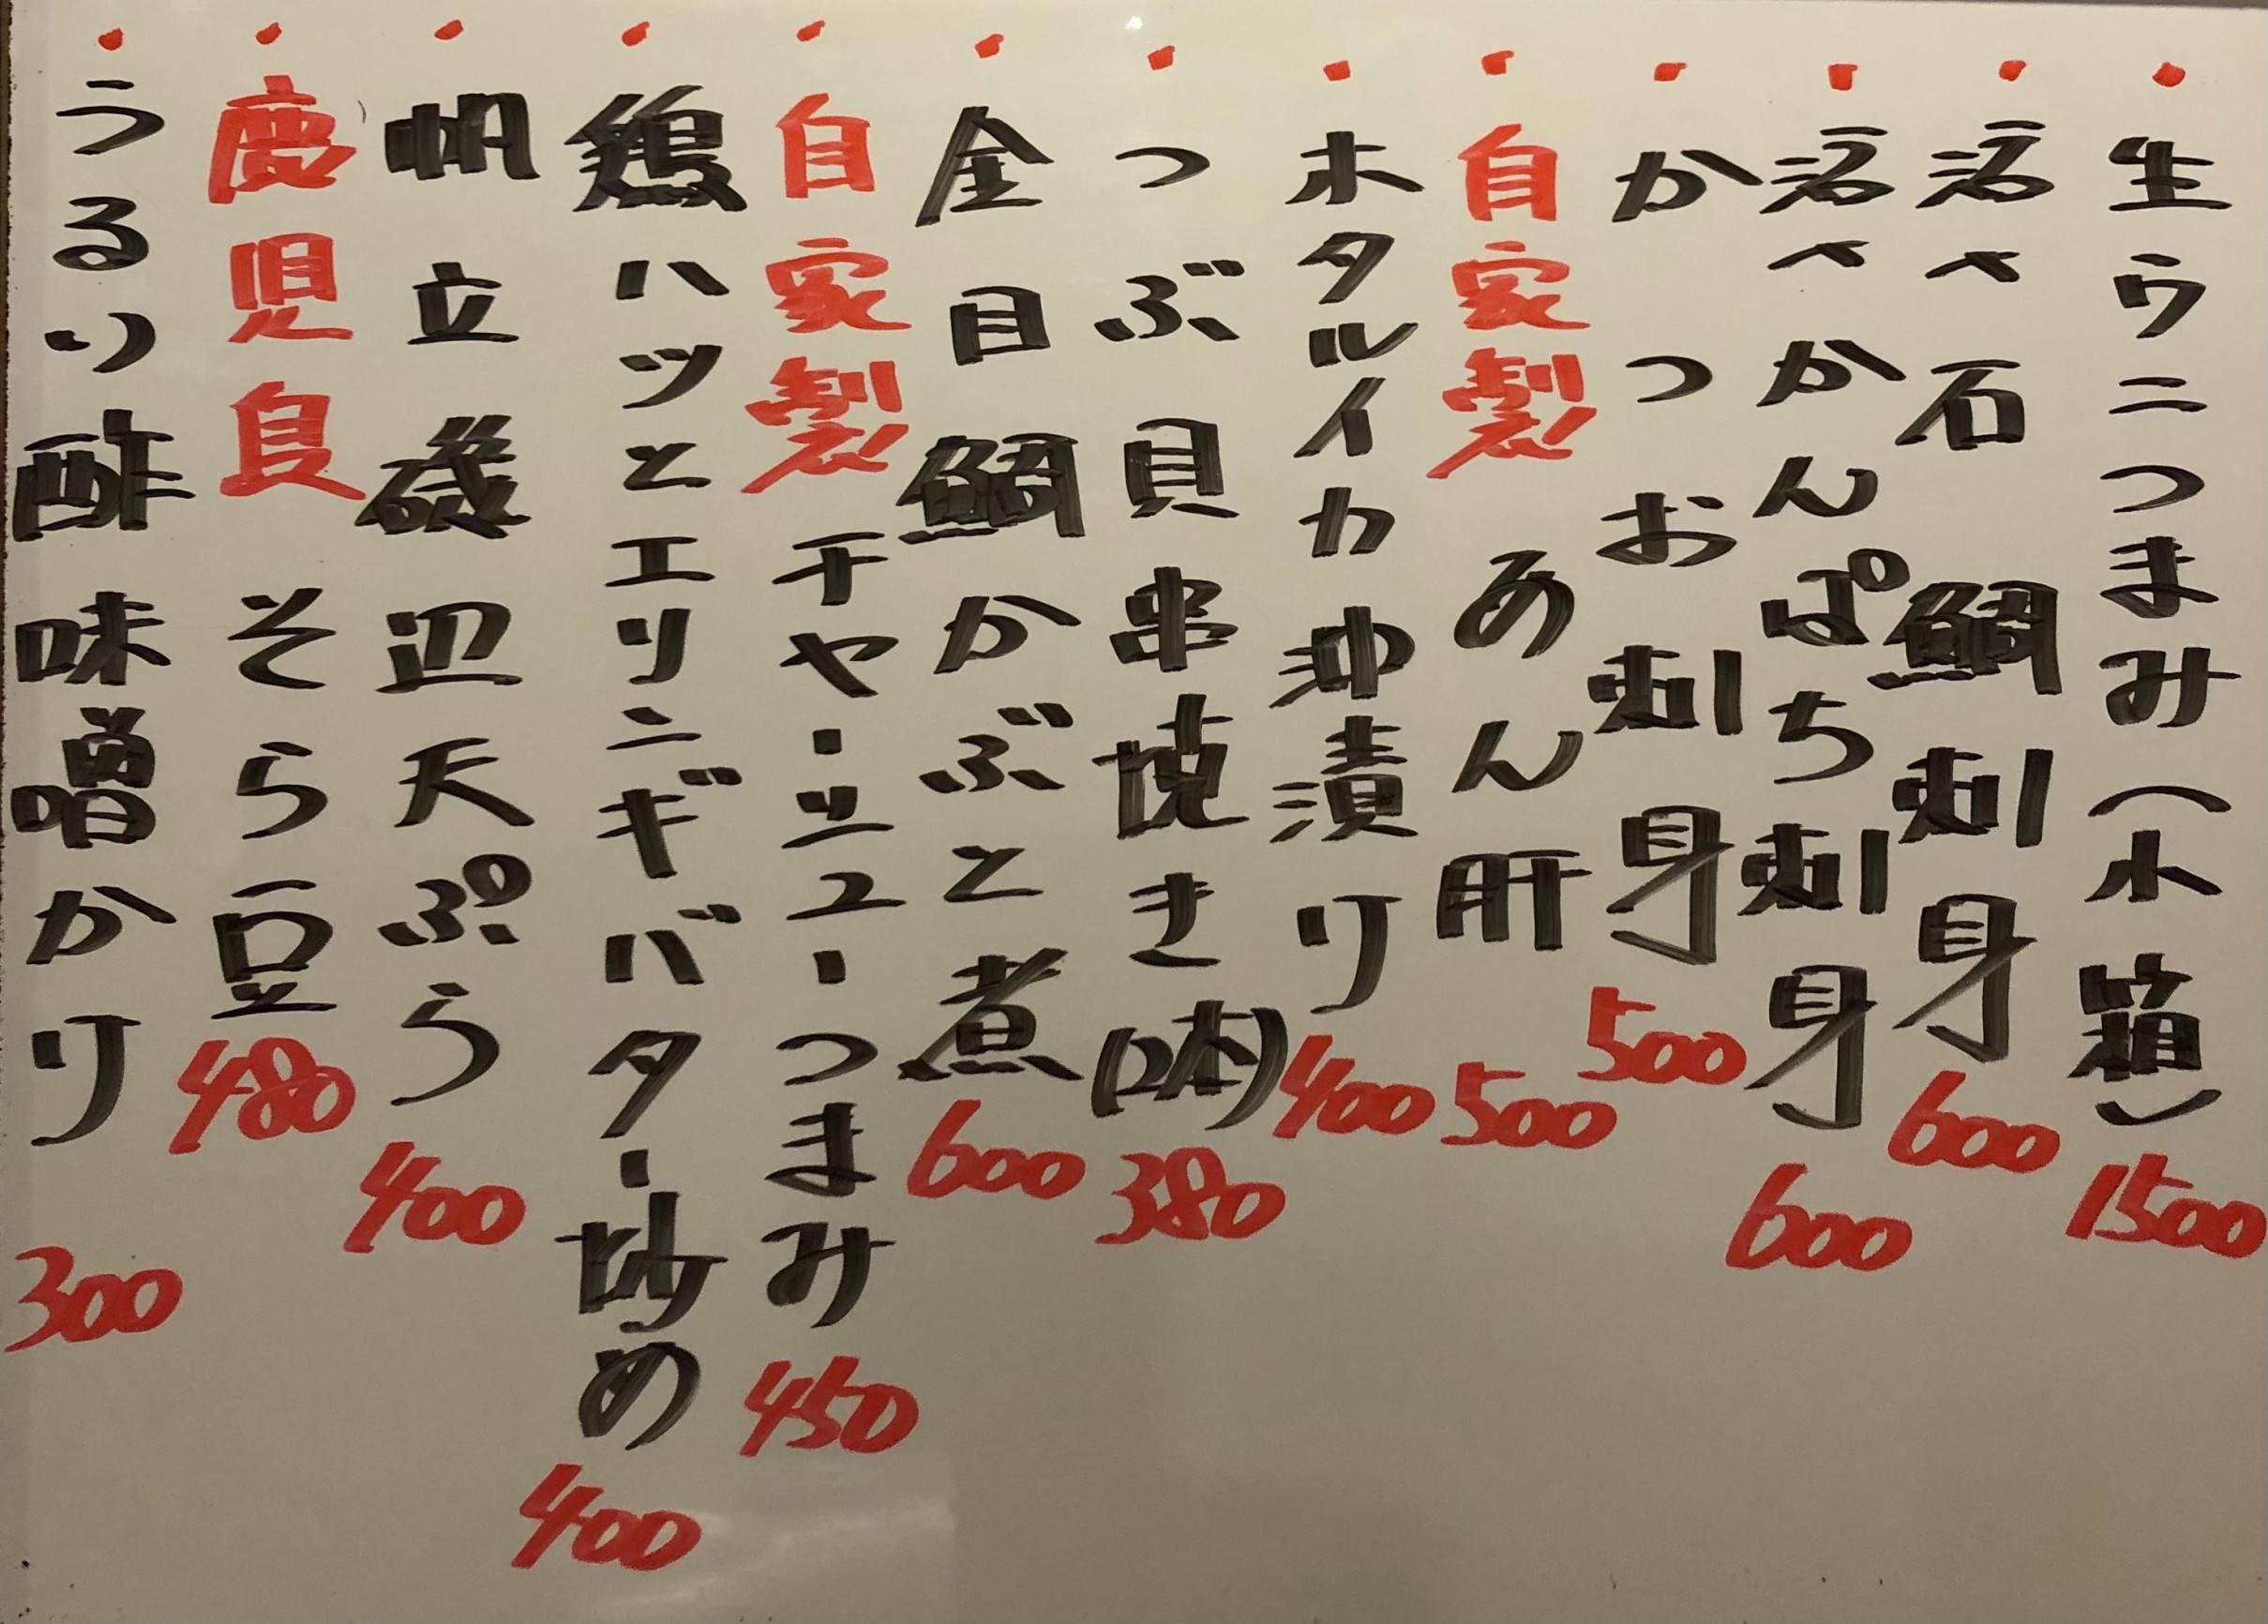 ・生ウニつまみ(小箱) 1500
・活〆石鯛刺身 600
・活〆かんぱち刺身 600
・かつお刺身 500
・自家製あん肝 500
・ホタルイカ沖漬け 400
・つぶ貝串焼き(2本) 380
・金目鯛かぶと煮 600
・自家製チャーシューつまみ 450
・鶏ハツとエリンギバター炒め 400
・帆立磯辺天ぷら 400
・鹿児島そら豆 480
・うるい酢味噌かけ 300